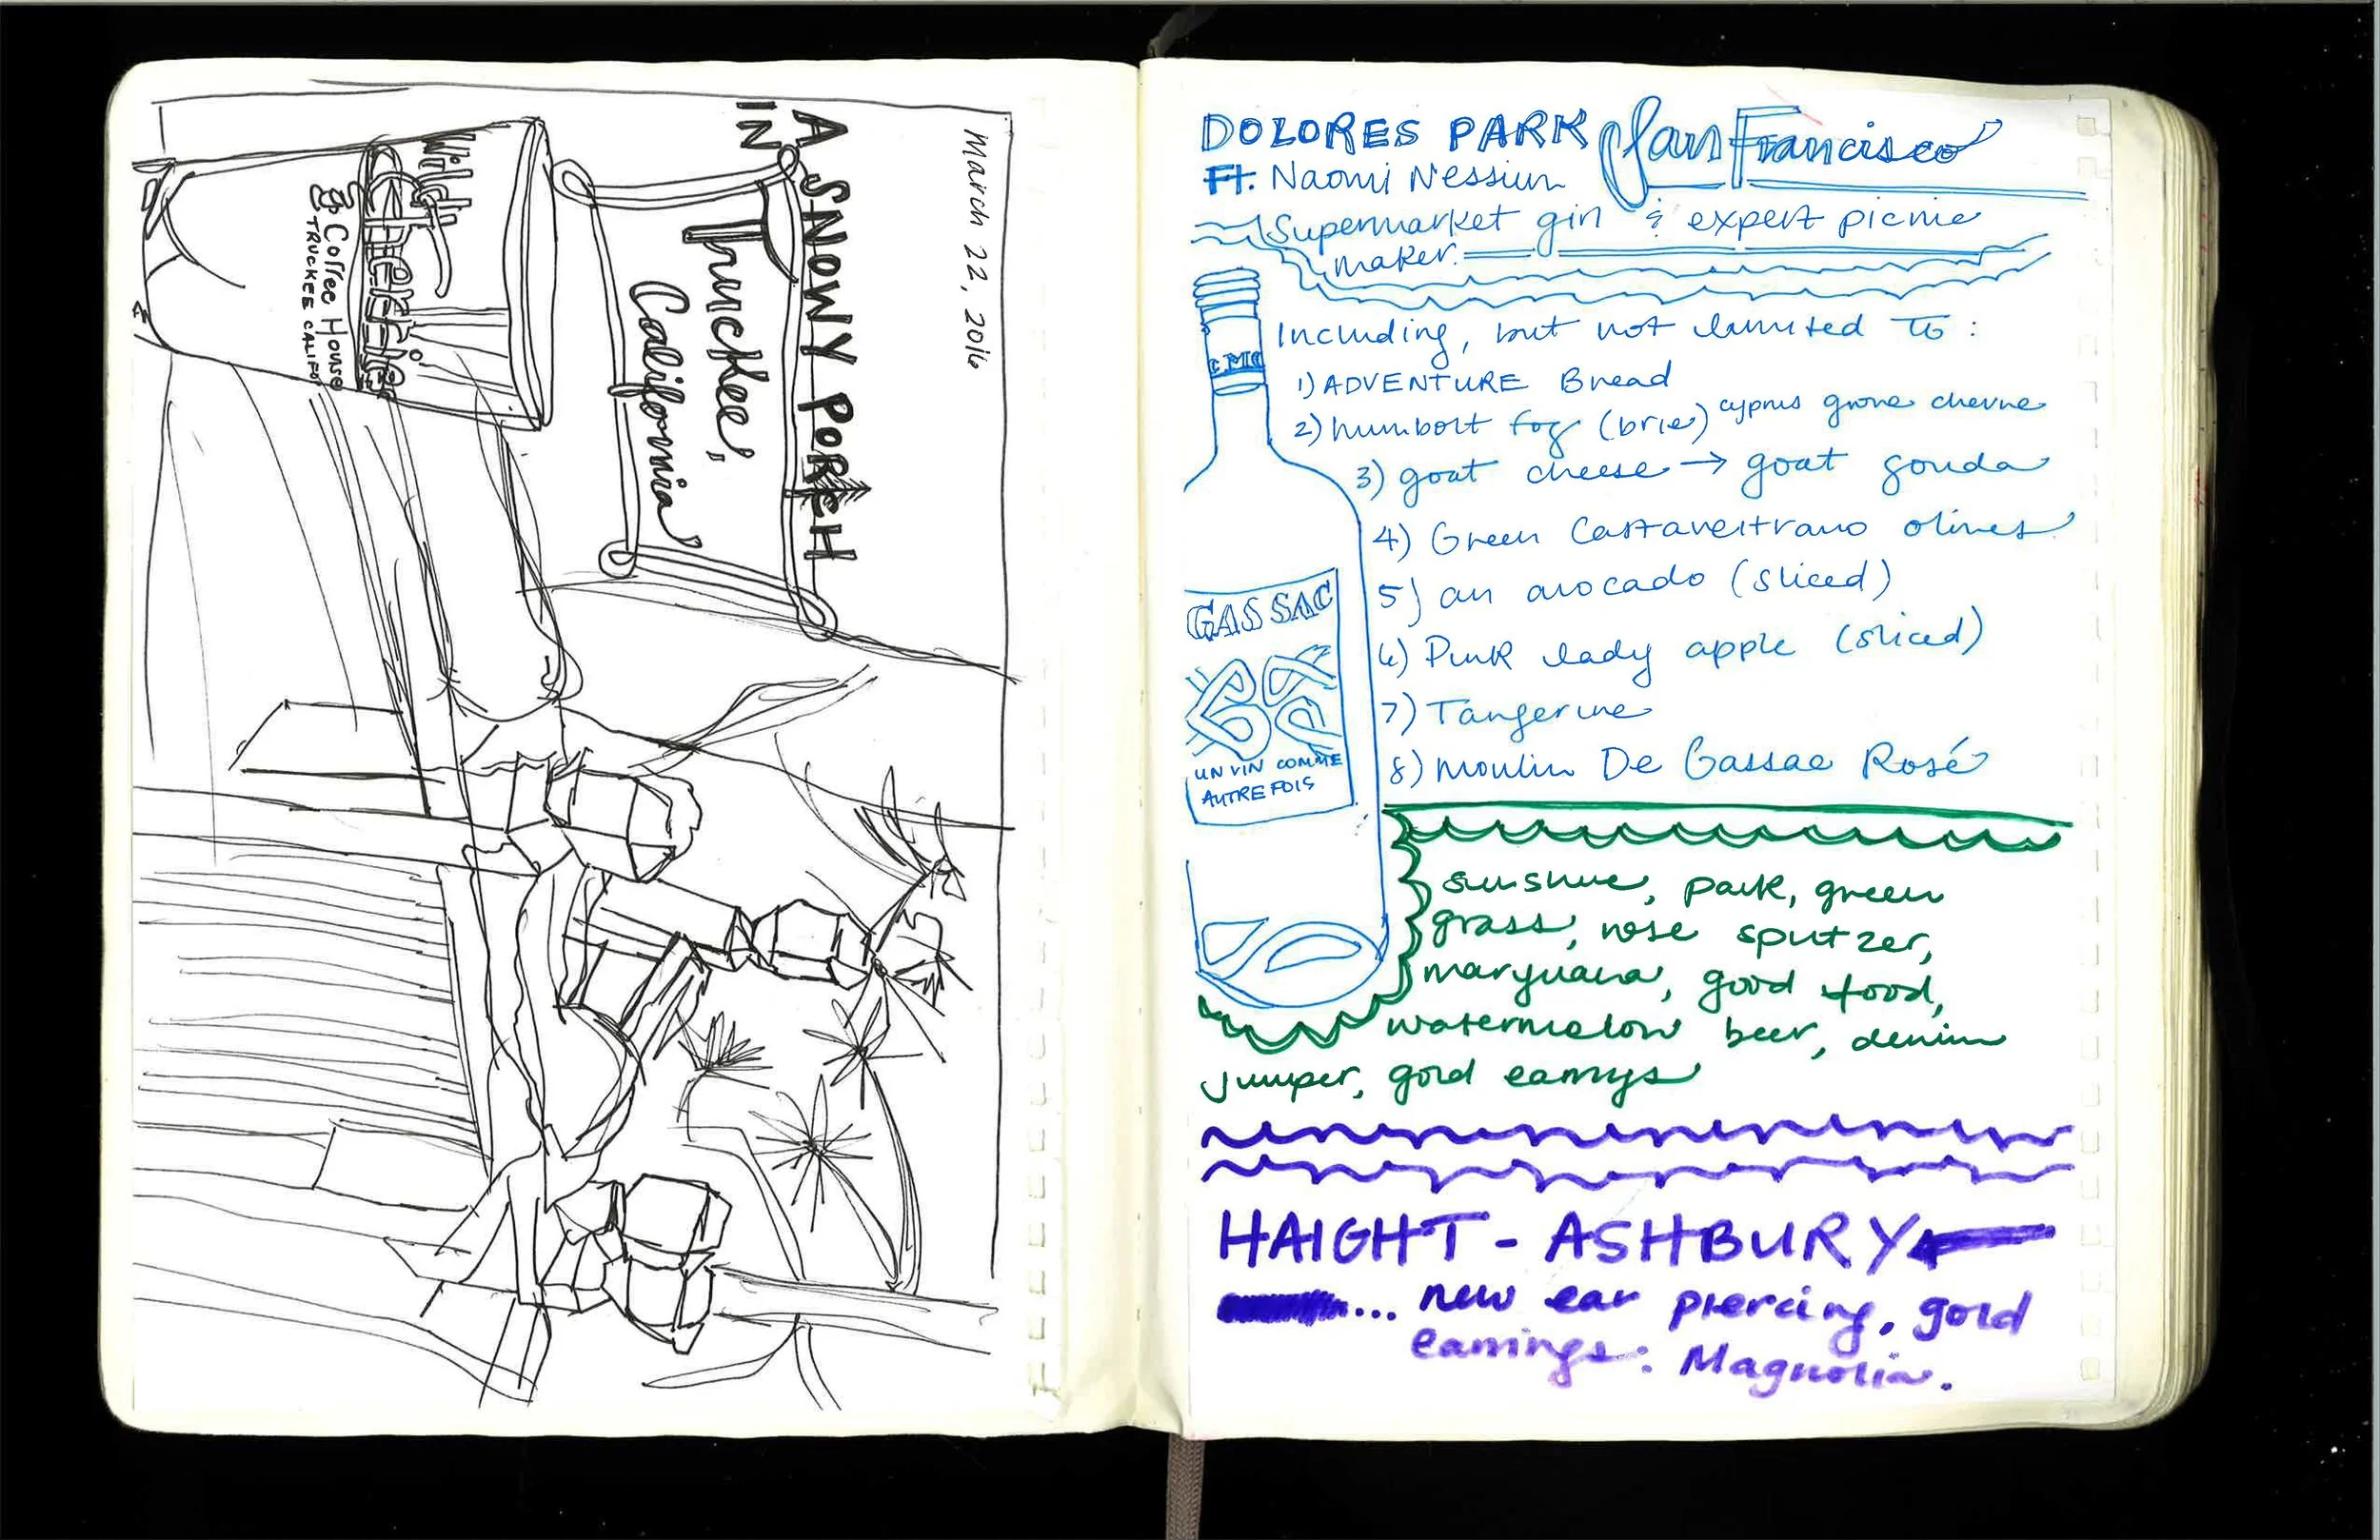 March 22, 2016
A SNOWY PORCH
IN
Truckee,
California
Wild
Cherries
Coffee House
TRUCKEE CALIF
DOLORES PARK San Francisco
Ft. Naomi Nessim
Supermarket girl & expert picnic
maker.
Including, but not limited to:
1) ADVENTURE Bread
2) humbolt fog (brie) cyprus grove chevre
3) goat cheese → goat gouda
4) Green Castaveltrano olives
5) an avocado (sliced)
6) Pink lady apple (sliced)
7) Tangerine
8) Moulin De Gassac Rosé
GASSAC
UN VIN COMME
AUTREFOIS
sunshine, park, green
grass, rose spritzer,
maryuana, good food,
watermelon beer, denim
jumper, gold earrings
HAIGHT-ASHBURY
... new ear piercing, gold
earrings: Magnolia.